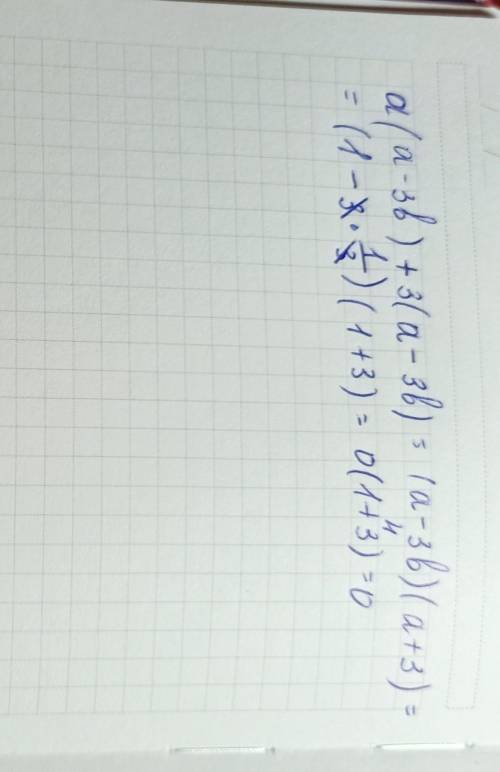 a(a-3b)+3(a-3b)=(a-3b)(a+3)=
=(1-3·1/3)(1+3)=0(1+3)=0
4